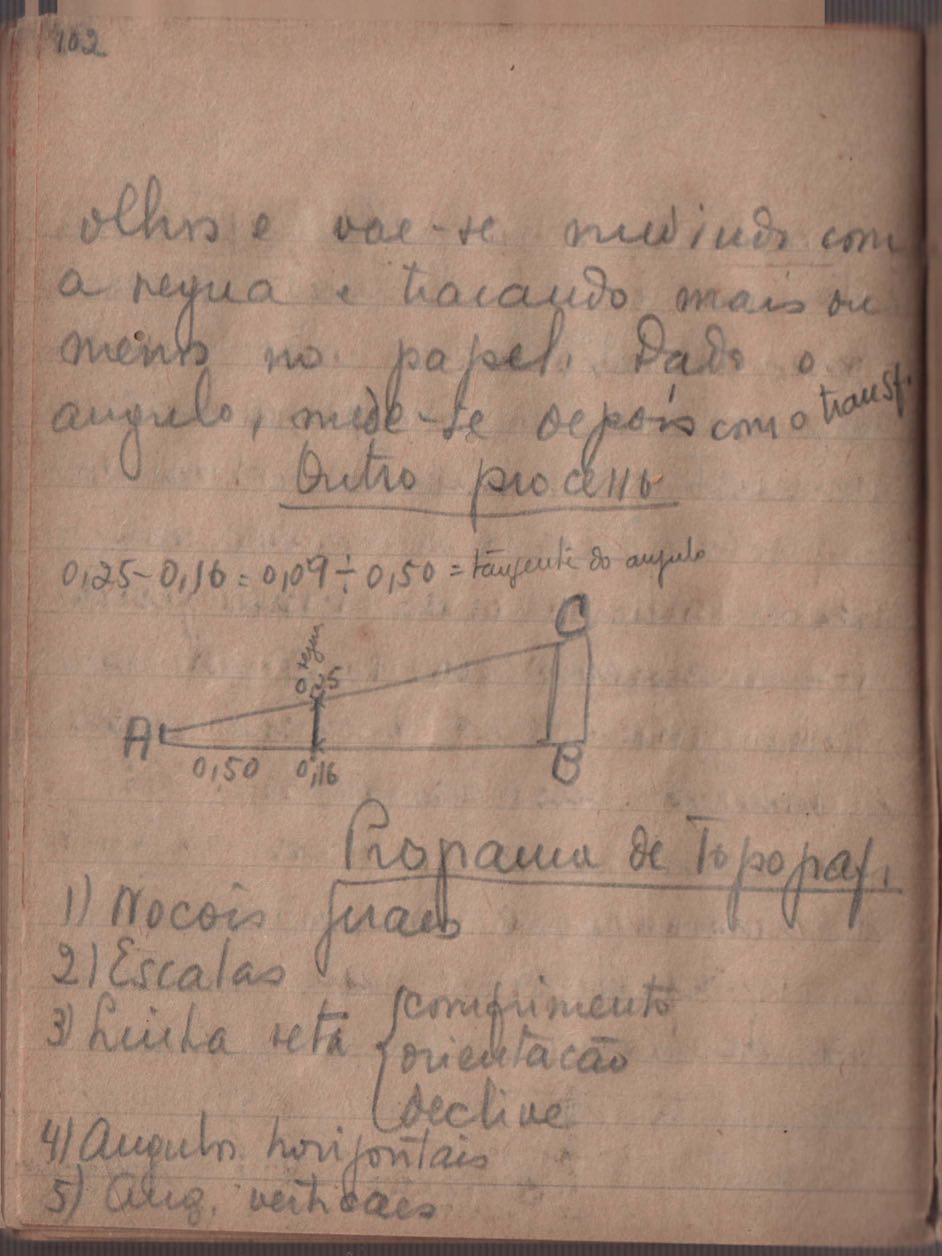 102
olhos e vae-se medindo com
a regua e tracando mais ou
menos no papel. Dado o
angulo, mede-se depois com o transf.
Outro processo
0,25-0,16=0,09÷0,50=tangente do angulo
regua
C
0,25
A
0,50
0,16
B
Programa de Topograf.
1) Nocois geraes
2) Escalas
3) Linha reta { comprimento
orientacão
declive
4) Angulos horizontais
5) Ang. verticaes